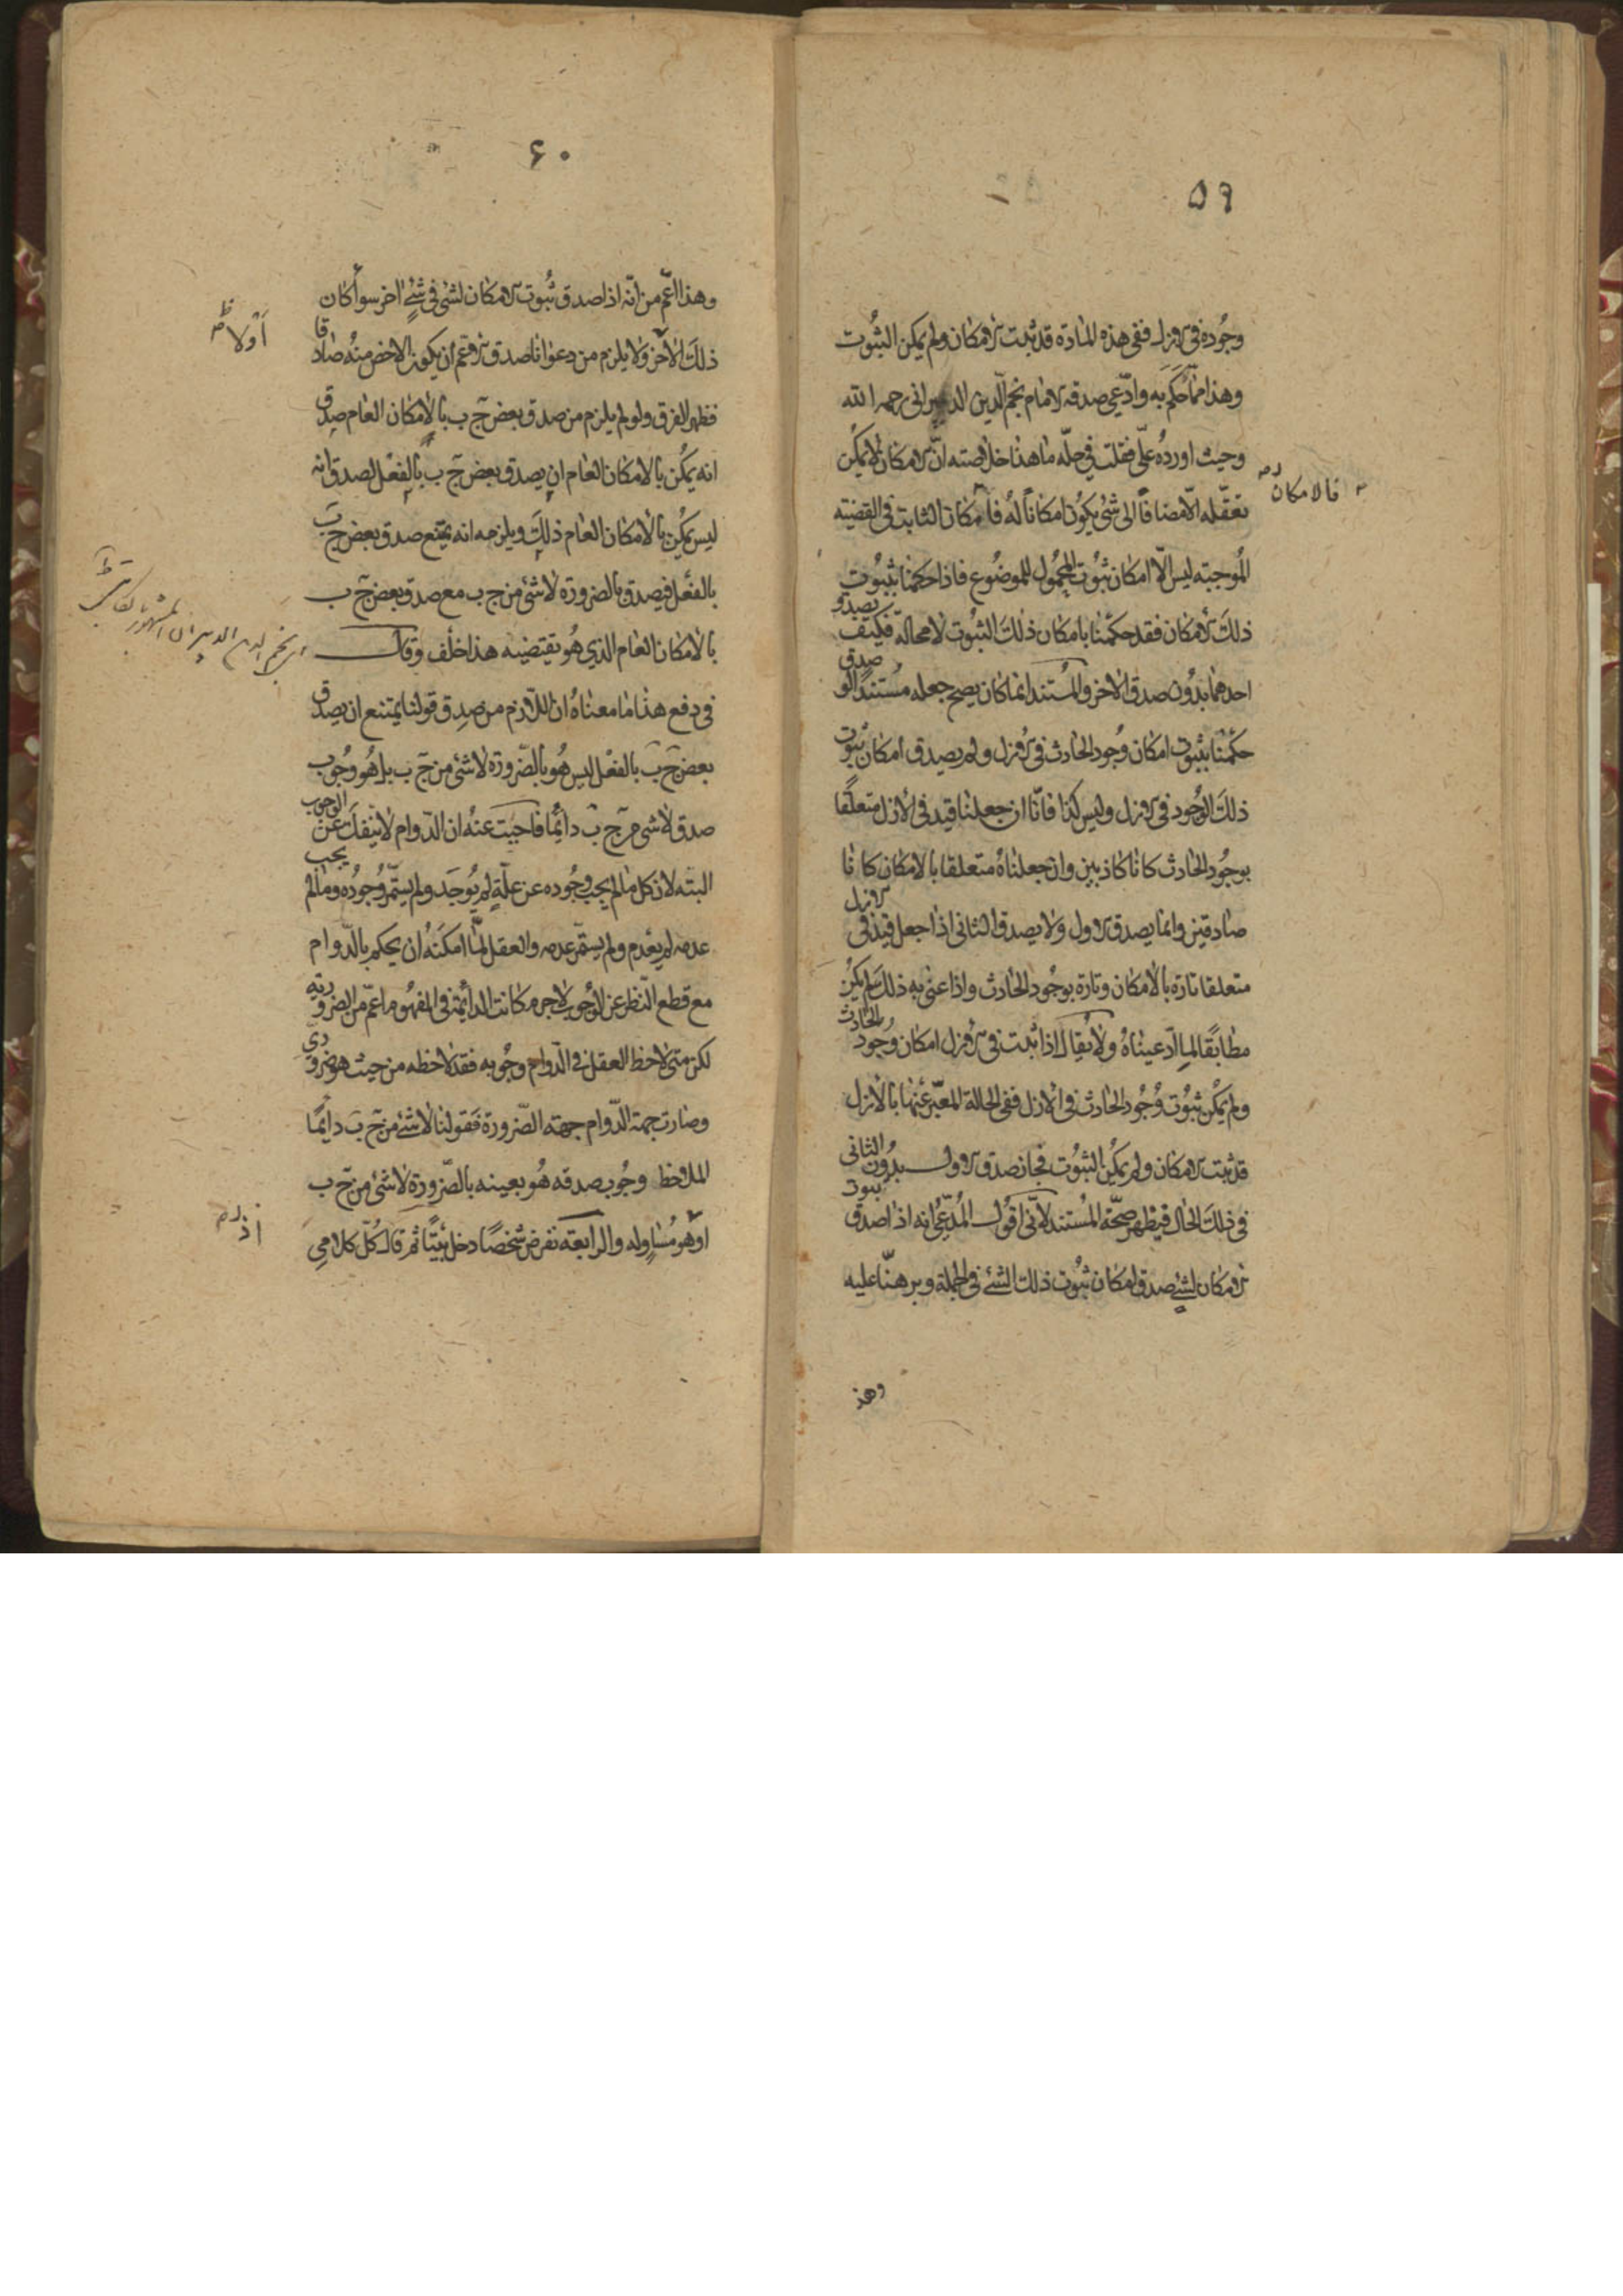 ٥٩
وجُوده في الازل ففي هذه المادة قد ثبت الامكان ولم يمكن الثبُوت
وهذا ممّا حَكَم به وادّعي صدقه الامام نجم الدّين الدبيراني رحمه الله
وحيث اورده علىّ فقلت في حلّه ما هذا خلاصته انّ الامكان لا يمكن
فالامكان
تعقّله الّا مضافًا الى شئ يكون امكانًا لهُ فامكان الثابت في القضيته
المُوجبته ليس الّا امكان ثبُوت المحمُول للموضُوع فاذا حكمنا بثبُوت
ذلك الامكان فقد حكمنا بامكان ذلك الثبُوت لا محالة فكيف يصدق
احدهما بدُون صدق الاخر والمُستند انما كان يصح جعله مُستندًا لو صدق
حكمنا بثبوت امكان وجُود الحادث في الازل ولم يصدق امكان ثبُوت
ذلك الوجُود في الازل وليس كذا فانّا ان جعلنا قيد في الازل متعلقًا
بوجُود الحادث كانا كاذبين وان جعلناهُ متعلقا بالامكان كانا
صادقين وانما يصدق الاول ولا يصدق الثاني اذا جعل قيد في الازل
متعلقا تارة بالامكان وتارة بوجُود الحادث واذا عني به ذلك لم يكن
مطابقًا لما ادّعيناهُ ولا يُقال اذا ثبت في الازل امكان وجُود الحادث
ولم يمكن ثبُوت وُجُود الحادث في الازل ففي الحالة المعبّر عنها بالازل
قد ثبت الامكان ولم يمكن الثبُوت فجاز صدق الاول بدُون الثاني
في ذلك الحال فيظهر صحّة المُستند لانّي اقُول المُدّعي انه اذا صدق ثبوت
الامكان لشئ صدق امكان ثبُوت ذلك الشئ في الجملة وبرهنّا عليه
وهذ
٦٠
وهذا اعّم من انّه اذا صدق ثبُوت الامكان لشئ في شئ اخر سواء كان
اولا
ذلك الاخر ولا يلزم من دعوانا صدق الاعم ان يكون الاخص منهُ صادقا
فظهر الفرق ولو لم يلزم من صدق بعض ج ب بالامكان العام صدق
انه يمكن بالامكان العام ان يصدق بعض ج ب بالفعل لصدق انه
ليس يمكن بالامكان العام ذلك ويلزمه انه يمتنع صدق بعض ج ب
بالفعل فيصدق بالضرورة لا شئ من ج ب مع صدق بعض ج ب
بالامكان العام الذي هُو نقيضه هذا خلف وقال
نجم الدين الدبيران المشهور بكاتبي
في دفع هذا ما معناهُ ان اللازم من صدق قولنا يمتنع ان يصدق
بعض ج ب بالفعل ليس هُو بالضرورة لا شئ من ج ب بل هُو وجُوب
صدق لا شئ من ج ب دائمًا فاجبت عنهُ ان الدّوام لا ينفك عن الوجوب
البته لان كل ما لم يجب وجُوده عن علّةٍ لم يُوجَد ولم يستمّر وُجُودُه وما لم يجب
عدمه لم يعدم ولم يستمّر عدمه والعقل لمّا امكنَهُ ان يحكم بالدّوام
مع قطع النّظر عن الوُجُوب لا جرم كانت الدائمة في المفهُوم اعمّ من الضروريّة
لكن متى لاحظ العقل في الدّوام وجُوبه فقد لاحظه من حيث هو ضروري
وصارت جهة الدّوام جهته الضّرورة فقولنا لا شئ من ج ب دايمًا
الملاحظ وجُوب صدقه هُو بعينه بالضّرورة لا شئ من ج ب
اذ
او هو مُساوله والرابعته نفرض شخصًا دخل بيتًا ثم قال كُلّ كلامي